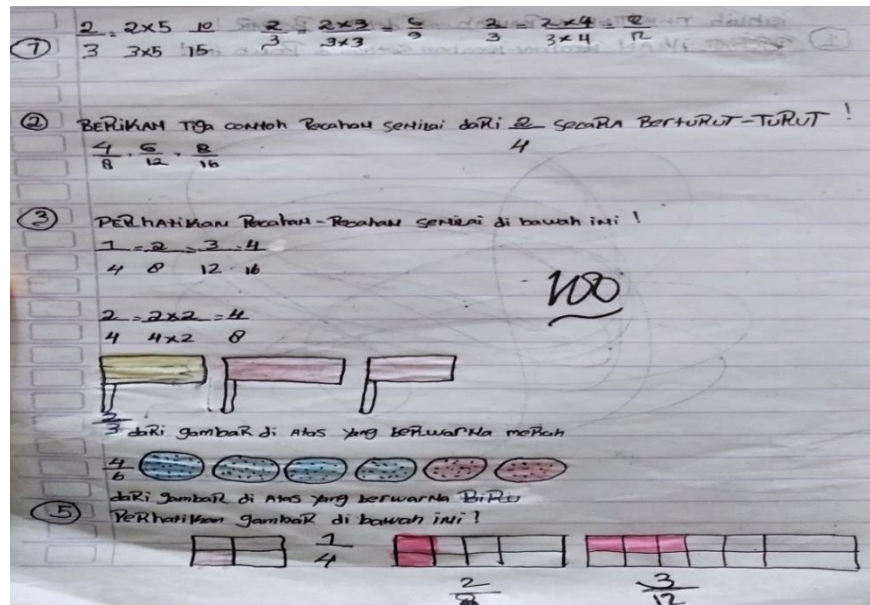 2/3 = 2x5/3x5 10/15 2/3 = 2x3/3x3 = 6/9 2/3 = 2x4/3x4 = 8/12
① 
② BERIKAN Tiga contoh Pecahan SENilai daRi 2/4 SecaRA BERtuRUT-TuRUT !
4/8 . 6/12 . 8/16
③ PERhAtiKan Pecahan-Pecahan SENilai di bawah iNi !
1/4 = 2/8 = 3/12 = 4/16
100
2/4 = 2x2/4x2 = 4/8
2/3 daRi gambaR di Atas yang beRwarNa meRah
4/6
daRi gambaR di Atas yang berwarNa BiRu
⑤ PeRhatiKan gambaR di bawah iNi !
1/4
2/8
3/12